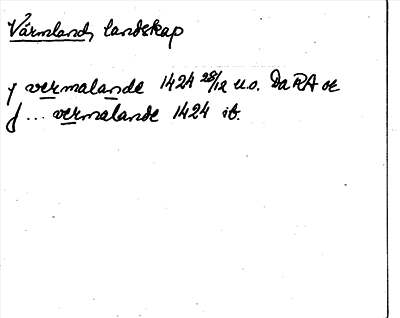 Värmland, landskap
y vermalande 1424 28/12 u.o. DaRA oe
J ... vermalande 1424 ib.